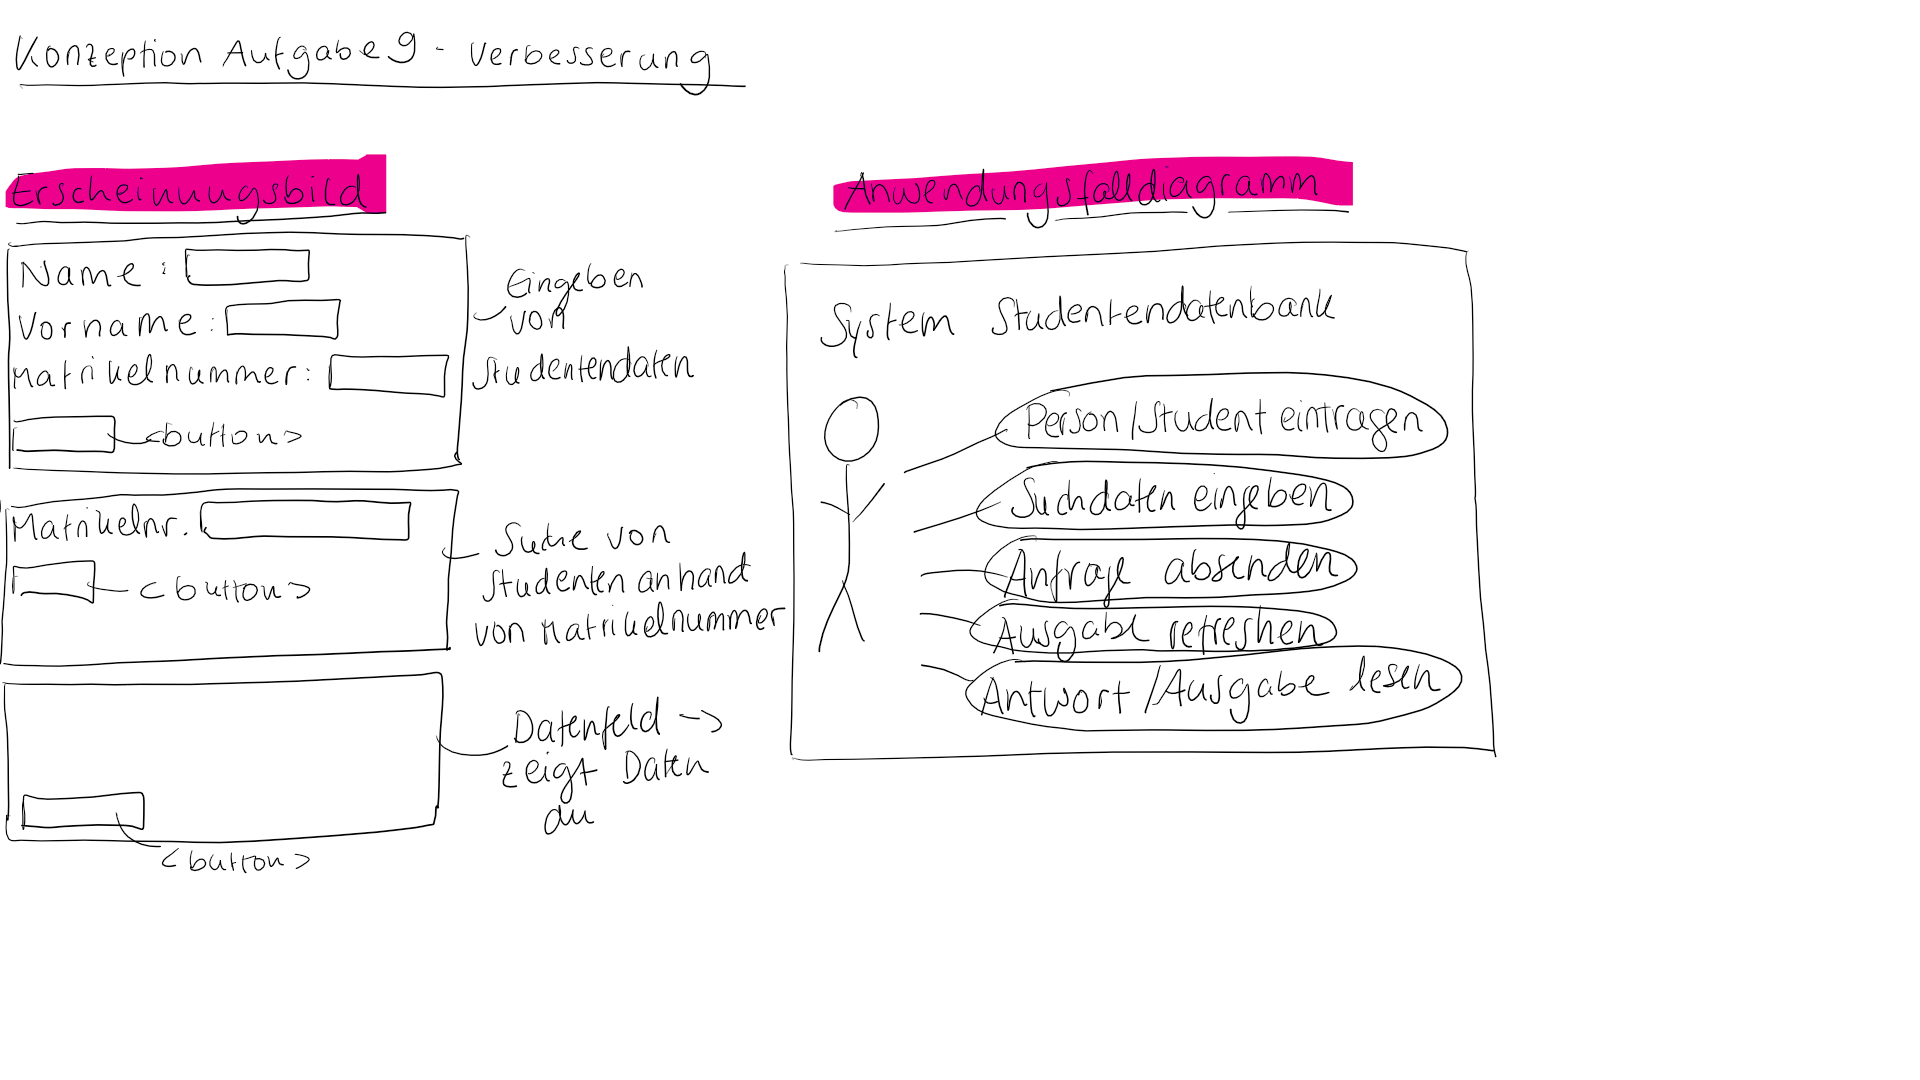 Konzeption Aufgabe 9 - Verbesserung
Erscheinuugsbild
Name :
Vorname :
Matrikelnummer :
<button>
Eingeben
von
Studentendaten
Matrikelnr.
<button>
Suche von
Studenten anhand
von Matrikelnummer
Datenfeld ->
zeigt Daten
an
<button>
Anwendungsfalldiagramm
System Studentendatenbank
Person/Student eintragen
Suchdaten eingeben
Anfrage absenden
Ausgabe refreshen
Antwort/Ausgabe lesen